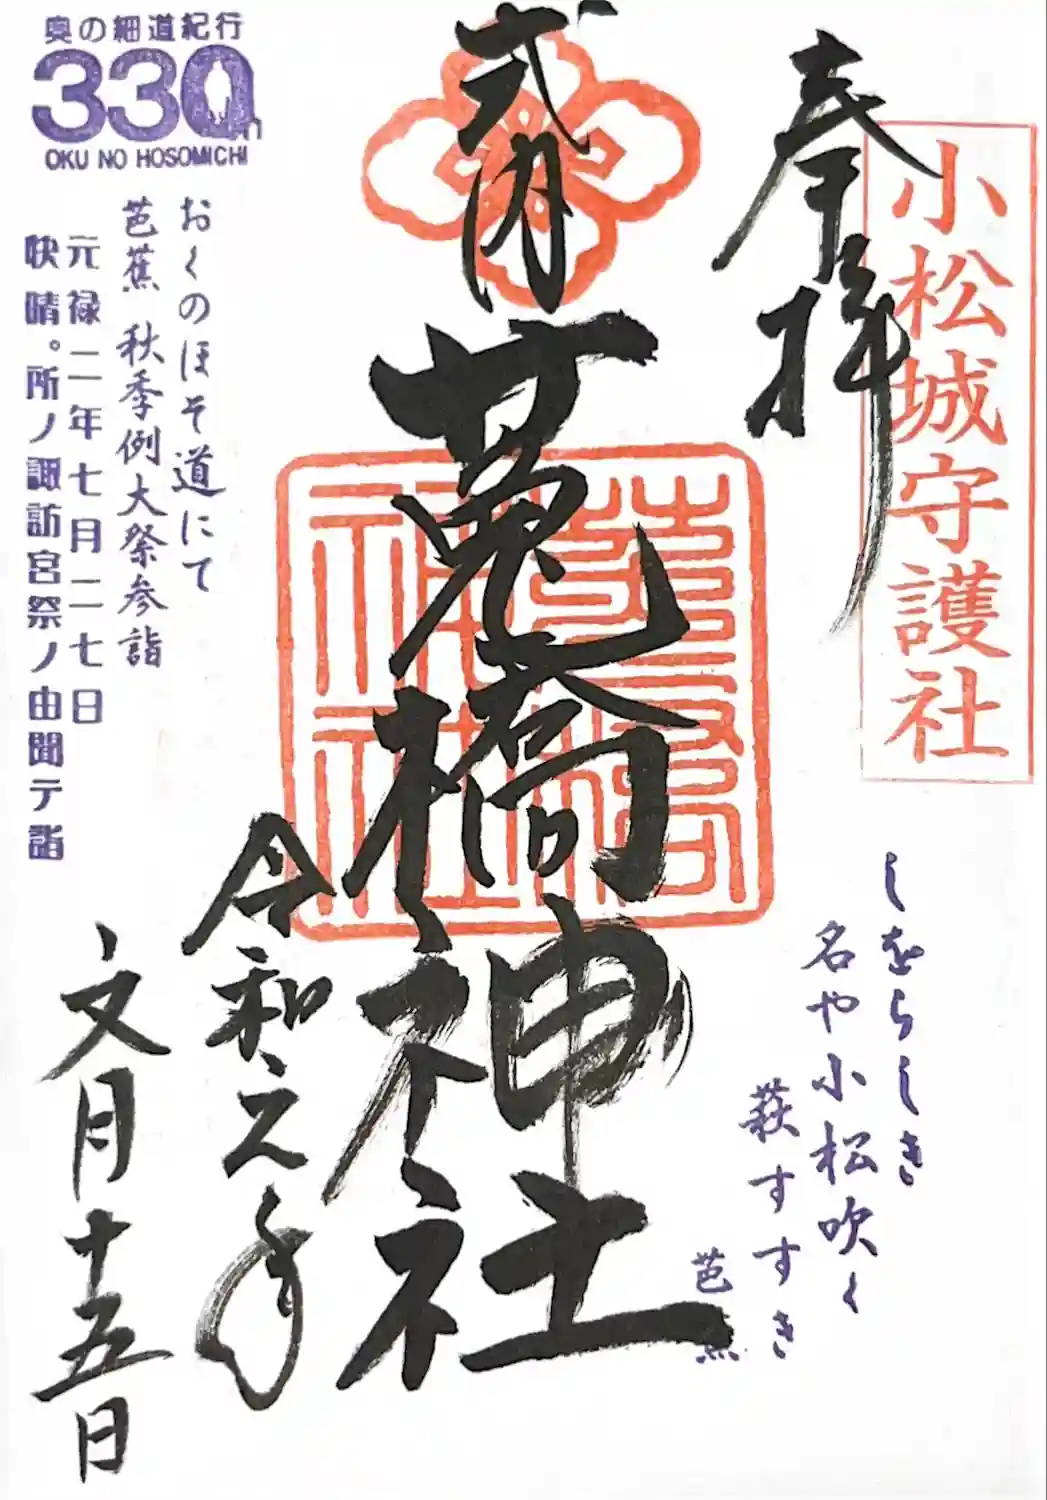 奉拝
小松城守護社
式内
莵橋神社
莵橋神社
しをらしき
名や小松吹く
萩すすき
芭蕉
令和元年
文月十五日
奥の細道紀行
330th
OKU NO HOSOMICHI
おくのほそ道にて
芭蕉 秋季例大祭参詣
元禄二年七月二七日
快晴。所ノ諏訪宮祭ノ由聞テ詣